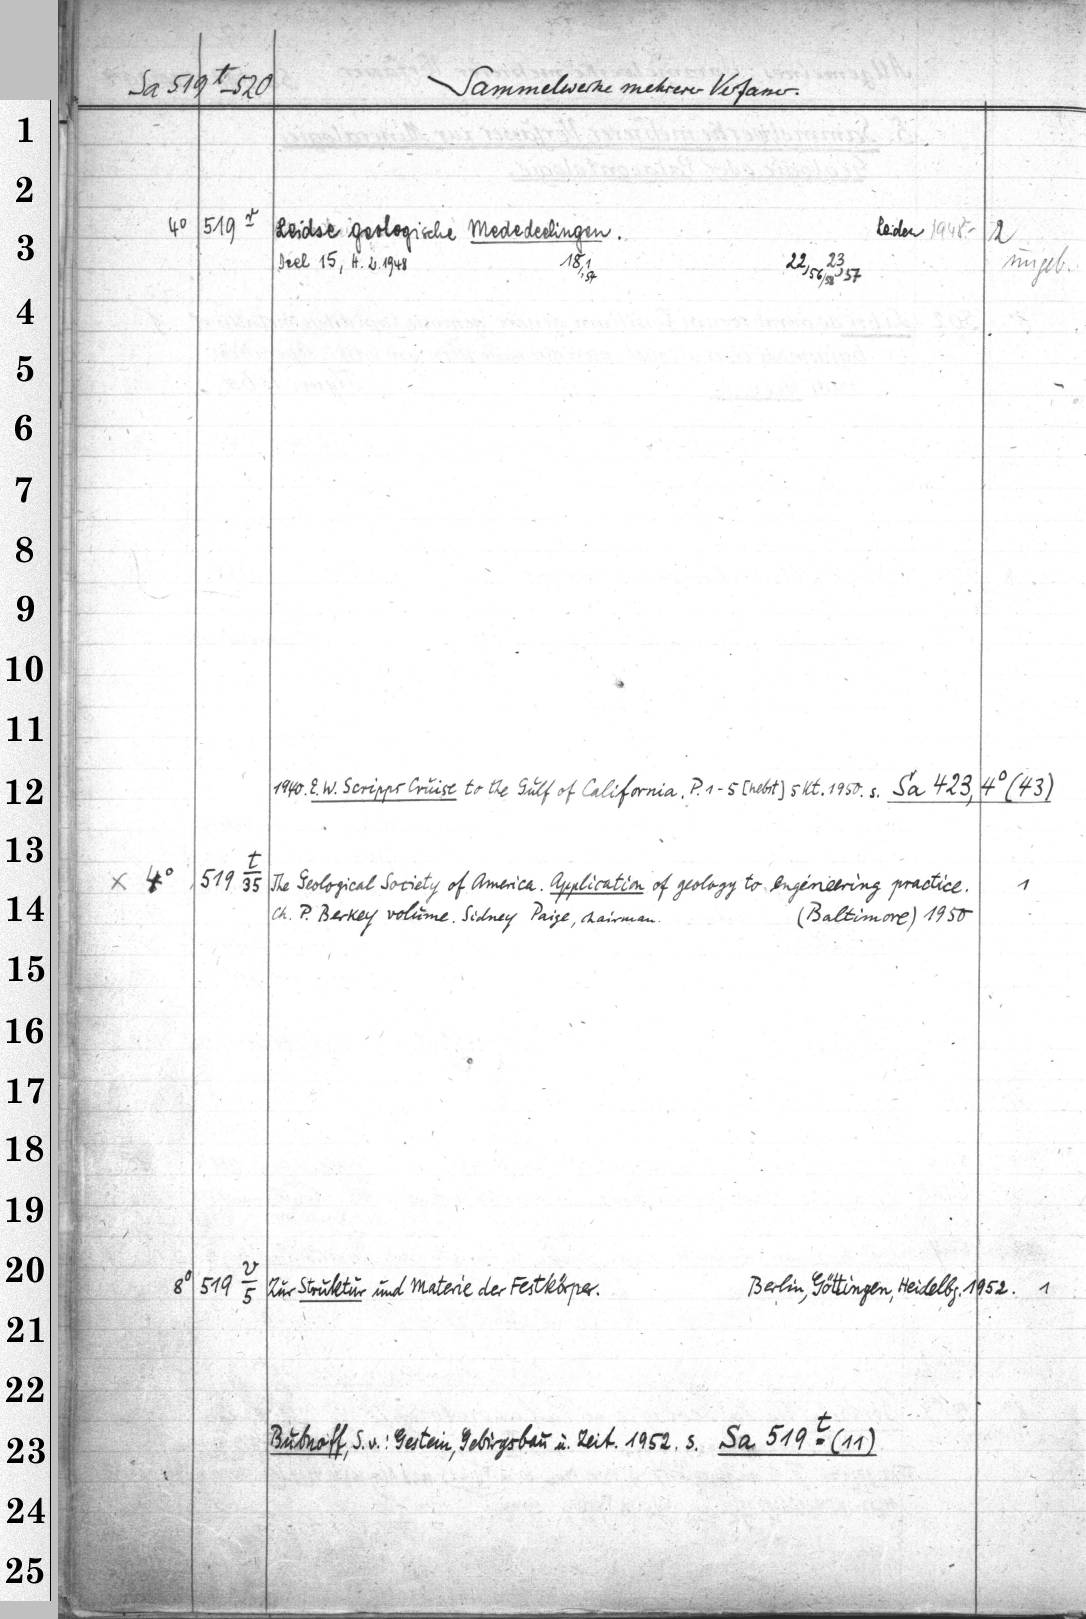 Sa 519 t-520 Sammelwerke mehrerer Verfasser.
1
2
4° 519 Leidse geologische Mededeelingen. Leiden 1948- 2
3
Deel 15, H. 2. 1948 18,1,57 22,56/58 23,57 ungeb.
4
5
6
7
8
9
10
11
12
1940. E. W. Scripps Cruise to the Gulf of California. P. 1-5 [nebst] 5 Kt. 1950. s. Sa 423, 4° (43)
13
× 4° 519 t/35 The Geological Society of America. Application of geology to engineering practice. 1
14
Ch. P. Berkey volume. Sidney Paige, chairman. (Baltimore) 1950
15
16
17
18
19
20
8° 519 v/5 Zur Struktur und Materie der Festkörper. Berlin, Göttingen, Heidelbg. 1952. 1
21
22
23
Bubnoff, S. v.: Gestein, Gebirgsbau u. Zeit. 1952. s. Sa 519 t (11)
24
25